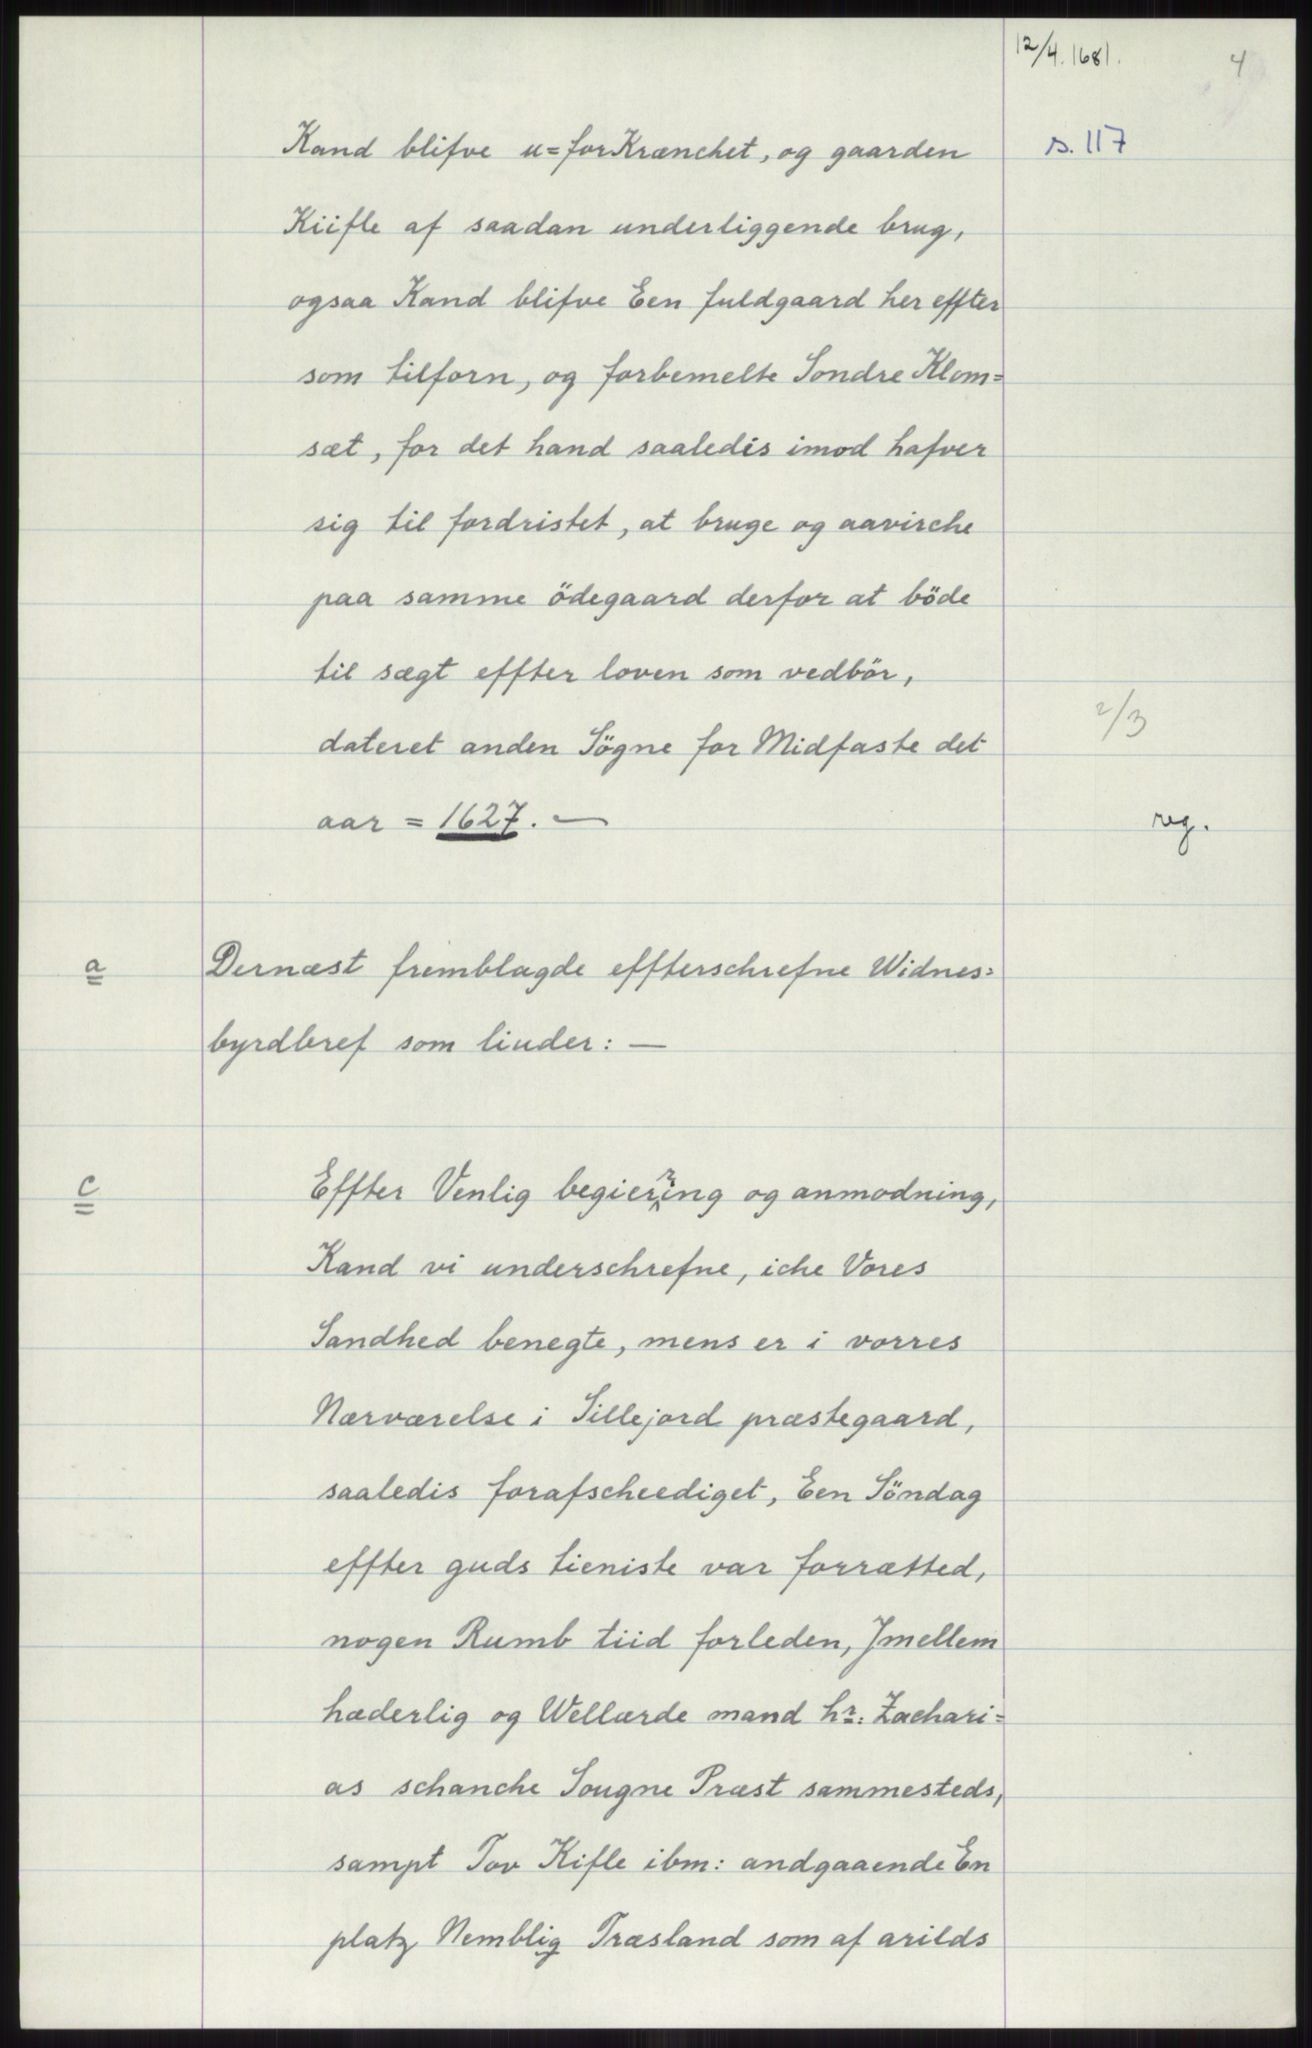 12/4. 1681.
4
Kand blifve u=forKrænchet, og gaarden
s. 117
Kiifle af saadan underliggende brug,
ogsaa Kand blifve Een fuldgaard her effter
som tilforn, og forbemelte Sondre Klom=
sæt, for det hand saaledis imod hafver
sig til fordristet, at bruge og aavirche
paa samme ödegaard derfor at böde
til sægt effter loven som vedbör,
2/3
dateret anden Sögne for Midfaste det
aar = 1627. —
reg.
a
Dernæst fremblagde effterschrefne Widnes=
byrdbref som liuder: —
c
Effter Venlig begierring og anmodning,
Kand vi underschrefne, iche Vores
Sandhed benegte, mens er i vorres
Nærværelse i Sillejord præstegaard,
saaledis forafscheediget, Een Söndag
effter guds tieniste var forrætted,
nogen Rumb tiid forleden, Jmellem
hæderlig og Wellærde mand hr: Zachari=
as schanche Sougne Præst sammesteds,
sampt Tov Kifle ibm: andgaaende En
platz Nemblig Træsland som af arilds